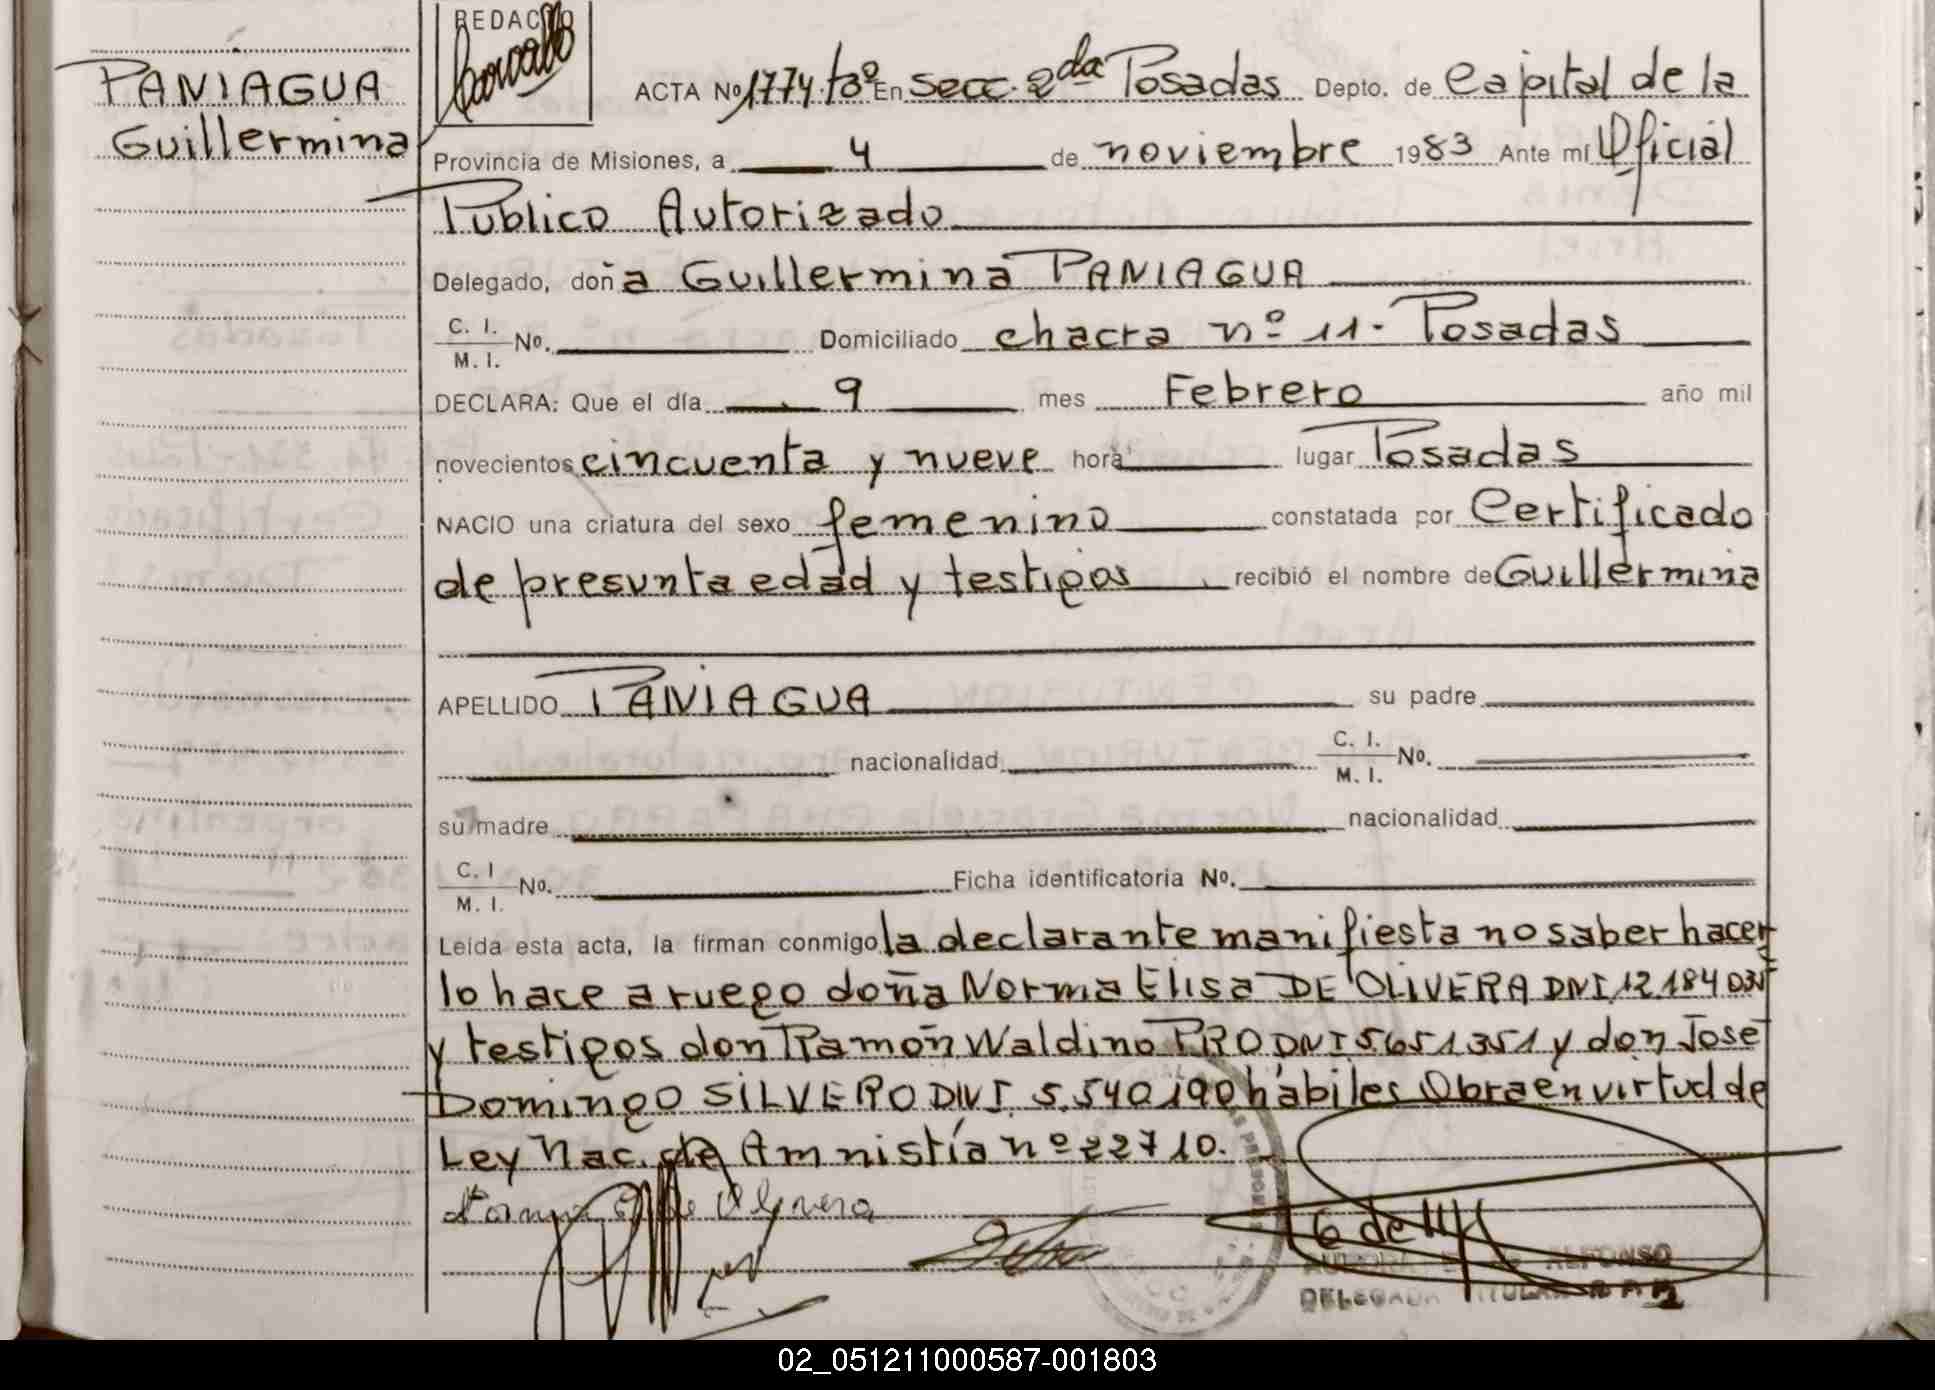 REDACTO
PANIAGUA
Guillermina
ACTA Nº 1774 tº En secc. 2da Posadas Depto. de Capital de la
Provincia de Misiones, a 4 de noviembre 1983 Ante mí Oficial
Público Autorizado
Delegado, doña Guillermina PANIAGUA
C. I.
M. I. Nº. Domiciliado chacra nº 11- Posadas
DECLARA: Que el día 9 mes Febrero año mil
novecientos cincuenta y nueve hora lugar Posadas
NACIO una criatura del sexo femenino constatada por Certificado
de presunta edad y testigos recibió el nombre de Guillermina
APELLIDO PANIAGUA su padre
nacionalidad C. I.
M. I. Nº.
su madre nacionalidad
C. I
M. I. Nº. Ficha identificatoria Nº.
Leída esta acta, la firman conmigo la declarante manifiesta no saber hacer
lo hace a ruego doña Norma Elisa DE OLIVERA DNI 12.184.035
y testigos don Ramón Waldino PRO DNI 5.651.351 y don José
Domingo SILVERO DNI. 5.540.190 hábiles Obra en virtud de
Ley Nac. de Amnistía nº 22710.
ALFONSO
DELEGADA TITULAR
02_051211000587-001803